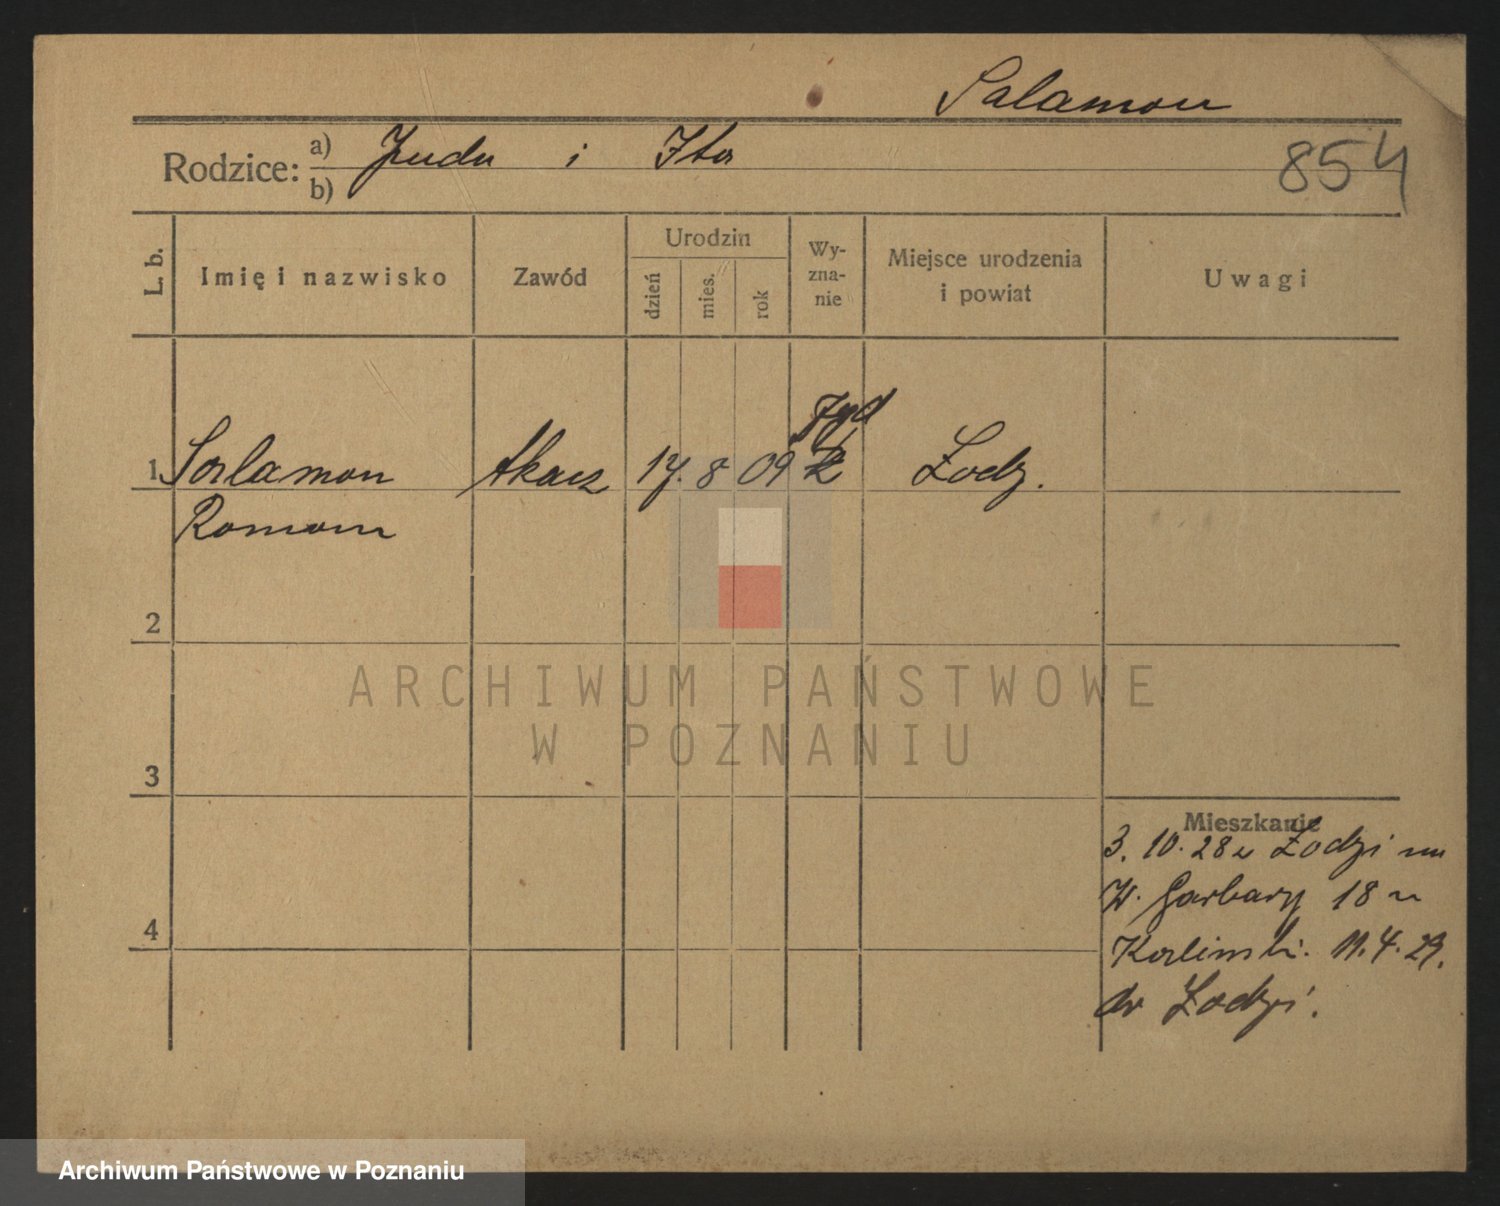 Salamon
Rodzice: a) Juda i Ita
b)
854
L. b.
Imię i nazwisko
Zawód
Urodzin
dzień
mies.
rok
Wy-
zna-
nie
Miejsce urodzenia
i powiat
Uwagi
1 Salamon tkacz 17. 8 09 Łodz.
Roman
2
3
4
Mieszkanie
3. 10. 28 z Łodzi na
W. Garbary 18 u
11. 4. 29.
do Łodzi.
ARCHIWUM PAŃSTWOWE
W POZNANIU
Archiwum Państwowe w Poznaniu